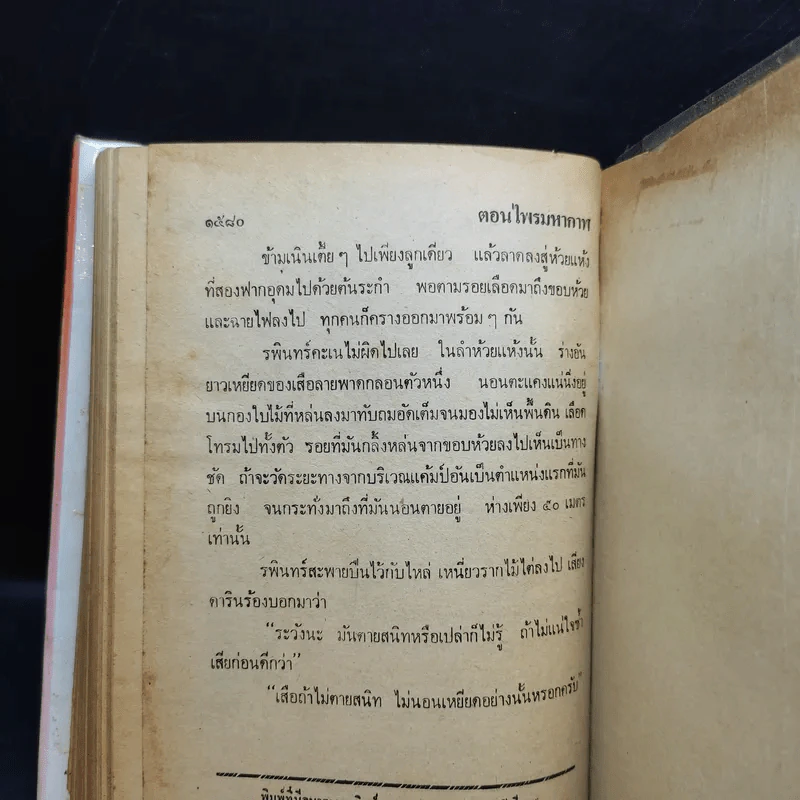 ๑๕๘๐
ตอนไพรมหากาฬ
ข้ามเนินเตี้ย ๆ ไปเพียงลูกเดียว แล้วลาดลงสู่ห้วยแห้ง
ที่สองฟากอุดมไปด้วยต้นระกำ พอตามรอยเลือดมาถึงขอบห้วย
และฉายไฟลงไป ทุกคนก็ครางออกมาพร้อม ๆ กัน
รพินทร์คะเนไม่ผิดไปเลย ในลำห้วยแห้งนั้น ร่างอัน
ยาวเหยียดของเสือลายพาดกลอนตัวหนึ่ง นอนตะแคงแน่นิ่งอยู่
บนกองใบไม้ที่หล่นลงมาทับถมอัดเต็มจนมองไม่เห็นพื้นดิน เลือด
โทรมไปทั้งตัว รอยที่มันกลิ้งหล่นจากขอบห้วยลงไปเห็นเป็นทาง
ชัด ถ้าจะวัดระยะทางจากบริเวณแค้มป์อันเป็นตำแหน่งแรกที่มัน
ถูกยิง จนกระทั่งมาถึงที่มันนอนตายอยู่ ห่างเพียง ๕๐ เมตร
เท่านั้น
รพินทร์สะพายปืนไว้กับไหล่ เหนี่ยวรากไม้ไต่ลงไป เสียง
ดารินร้องบอกมาว่า
“ระวังนะ มันตายสนิทหรือเปล่าก็ไม่รู้ ถ้าไม่แน่ใจซ้ำ
เสียก่อนดีกว่า”
“เสือถ้าไม่ตายสนิท ไม่นอนเหยียดอย่างนั้นหรอกครับ”